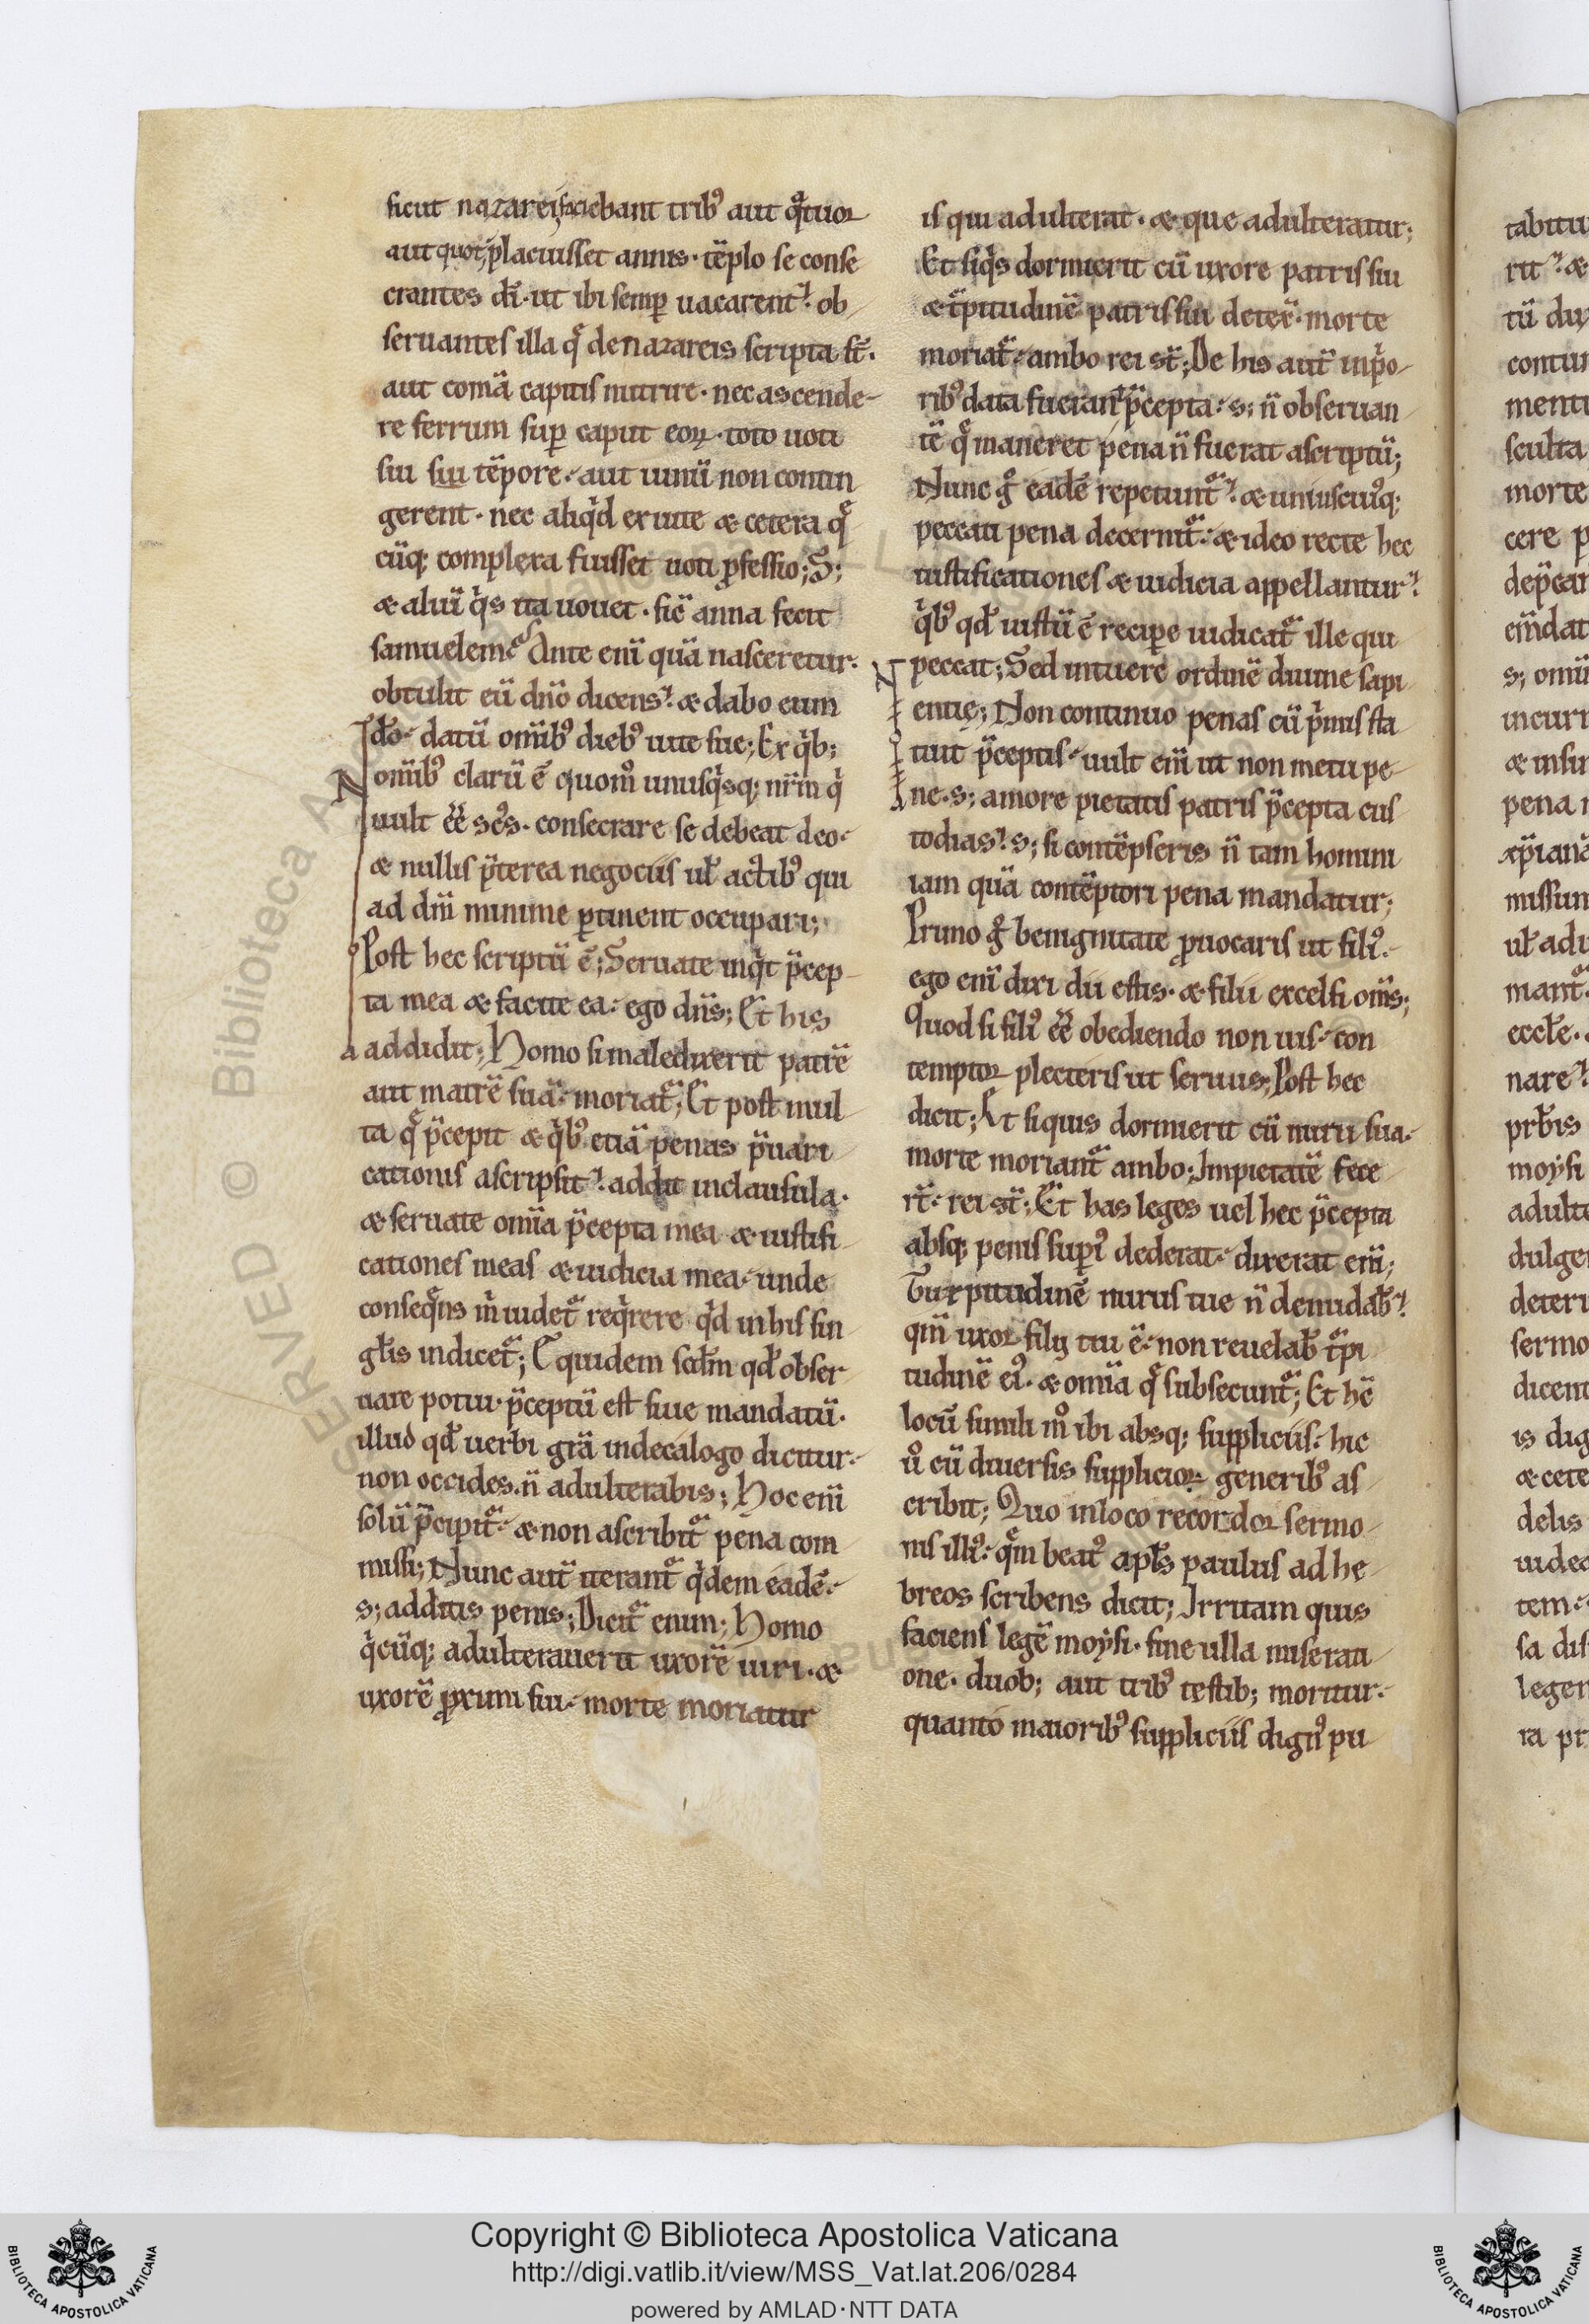 sicut nazarei faciebant trib᷒ aut qͣtuor
aut quot placuisset annis· tēplo se conse
crantes dī· ut ibi semꝑ uacarent· ob
seruantes illa q̄ de nazareis scripta st̄·
aut comā capitis nutrire· nec ascende-
re ferrum suꝑ caput eoꝝ· toto uoti
sui sui tēpore· aut uinū non contin
gerent· nec aliqͥd ex uite æ cetera q̄
cūq; complexa fuisset uoti ꝓfessio; S;
æ aliū qͥs ita uouet· sic̄ anna fecit
samuelem Ante enī quā nasceretur·
obtulit eū dn̄o dicens· æ dabo eum
dō· datū om̄ib᷒ dieb᷒ uite sue; Ex qͥb;
om̄ib᷒ clarū ē quom̊ unusqͥsq; nr̄m qͥ
uult ēē sc̄s· consecrare se debeat deo·
æ nullis p̄terea negociis ul̄ actib᷒ qui
ad dm̄ minime ꝑtinent occupari;
Post hec scriptū ē; Seruate inqͥt p̄cep
ta mea æ facite ea· ego dn̄s; Et his
addidit; Homo si maledixerit patrē
aut matrē suā· moriat᷑; Et post mul
ta q̄ p̄cepit æ qͥb᷒ etiā penas p̄uari
cationis ascripsit· addit in clausula·
æ seruate om̄ia p̄cepta mea æ iustifi
cationes meas æ iudicia mea· unde
conseq̄ns m̄ uidet᷑ reqͥrere qͥd in his sin
gl̄is indicet᷑; Et quidem scd̄m qd̄ obser
uare potui· p̄ceptū est siue mandatū·
illud qd̄ uerbi gr̄a in decalogo dicitur·
non occides· n̄ adulterabis; Hoc enī
solū p̄cipit᷑· æ non ascribit᷑ pena com
missi; Nunc aut̄ iterant᷑ qͥdem eadē·
s; additis penis; Dicit᷑ enim; Homo
qͥcūq; adulterauerit uxorē uiri· æ
uxorē ꝓximi sui· morte moriatur
is qui adulterat· æ que adulteratur;
Et siqͥs dormierit cū uxore patris sui
æ t᷑pitudinē patris sui detex̄· morte
moriat᷑· ambo rei st̄; De his aut̄ in pͥo
rib᷒ data fuerant p̄cepta· s; n̄ obseruan
tē q̄ maneret pena n̄ fuerat ascriptū;
Nunc gͦ eadē repetunt᷑· æ uniuscuiq;
peccati pena decernit᷑· æ ideo recte hec
iustificationes æ iudicia appellantur·
qͥb᷒ qd̄ iustū ē reciꝑe iudicat᷑ ille qui
peccat; Sed intuere ordinē diuine sapi
entię; Non continuo penas cū pͥmis sta
tuit p̄ceptis· uult enī ut non metu pe
ne· s; amore pietatis patris p̄cepta cus
todias· s; si contēpseris n̄ tam homini
iam quā contēptori pena mandatur;
Primo gͦ benignitate ꝓuocaris ut fili᷒·
ego enī dixi dii estis· æ filii excelsi om̄s;
Quod si fili᷒ ēē obediendo non uis· con
temptor plecteris ut seruus; Post hec
dicit; Et siquis dormierit cū nuru sua·
morte moriant᷑ ambo; Impietatē fece
rt̄· rei st̄; Et has leges uel hec p̄cepta
absq; penis suꝑi᷒ dederat· dixerat enī;
Turpitudinē nurus tue n̄ denudab̄·
qm̄ uxor filij tui ē· non reuelab̄ t᷑pi
tudinē ei᷒· æ om̄ia q̄ subsecunt᷑; Et hē
locū simili m̊ ibi absq; suppliciis· hic
ů cū diuersis supplicioꝝ generib᷒ as
cribit; Quo in loco recordor sermo
nis illi᷒· q̄m beat᷒ apl̄s paulus ad he
breos scribens dicit; Irritam quis
faciens legē moẏsi· sine ulla miserati
one· duob; aut trib᷒ testib; moritur·
quanto maiorib᷒ suppliciis dign᷒ pu
Copyright © Biblioteca Apostolica Vaticana
http://digi.vatlib.it/view/MSS_Vat.lat.206/0284
powered by AMLAD·NTT DATA
BIBLIOTECA APOSTOLICA VATICANA
BIBLIOTECA APOSTOLICA VATICANA